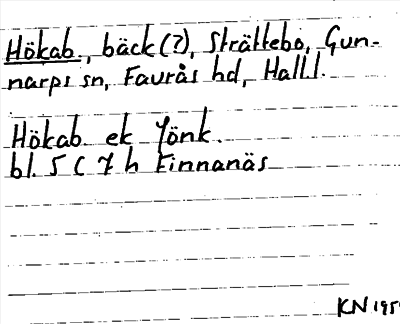 Hökab, bäck (?), Strättebo, Gun-
narps sn, Faurås hd, Halll.
Hökab ek Jönk.
bl. 5 C 7 h Finnanäs
KN 195